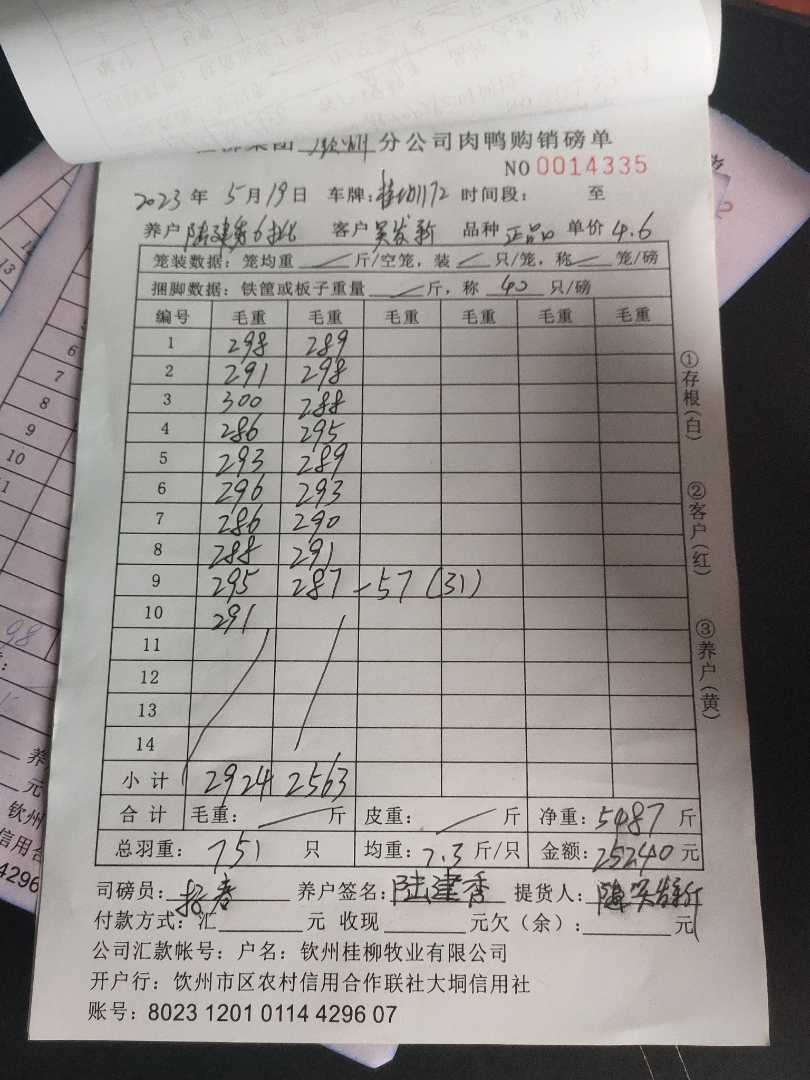 集团 钦州 分公司肉鸭购销磅单
NO 0014335
2023 年 5 月 19 日 车牌: 时间段: 至
养户 陆建秀6批 客户 吴发新 品种 正品 单价 4.6
笼装数据: 笼均重 斤/空笼, 装 只/笼, 称 笼/磅
捆脚数据: 铁筐或板子重量 斤, 称 40 只/磅
编号 毛重 毛重 毛重 毛重 毛重 毛重
1 298 289
2 291 298
3 300 288
4 286 295
5 293 289
6 296 293
7 286 290
8 288 291
9 295 287 -57 (31)
10 291
11
12
13
14
小计 2924 2563
合计 毛重: 斤 皮重: 斤 净重: 5487 斤
总羽重: 751 只 均重: 7.3 斤/只 金额: 25240 元
司磅员: 养户签名: 陆建秀 提货人: 吴发新
付款方式: 汇 元 收现 元欠(余): 元
公司汇款帐号: 户名: 钦州桂柳牧业有限公司
开户行: 钦州市区农村信用合作联社大垌信用社
账号: 8023 1201 0114 4296 07
①存根(白)
②客户(红)
③养户(黄)